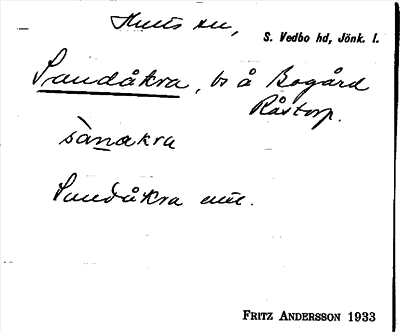 Hults sn,
S. Vedbo hd, Jönk. l.
Sandåkra, bs å Bogård
Råstorp.
sànakra
Sandåkra
FRITZ ANDERSSON 1933